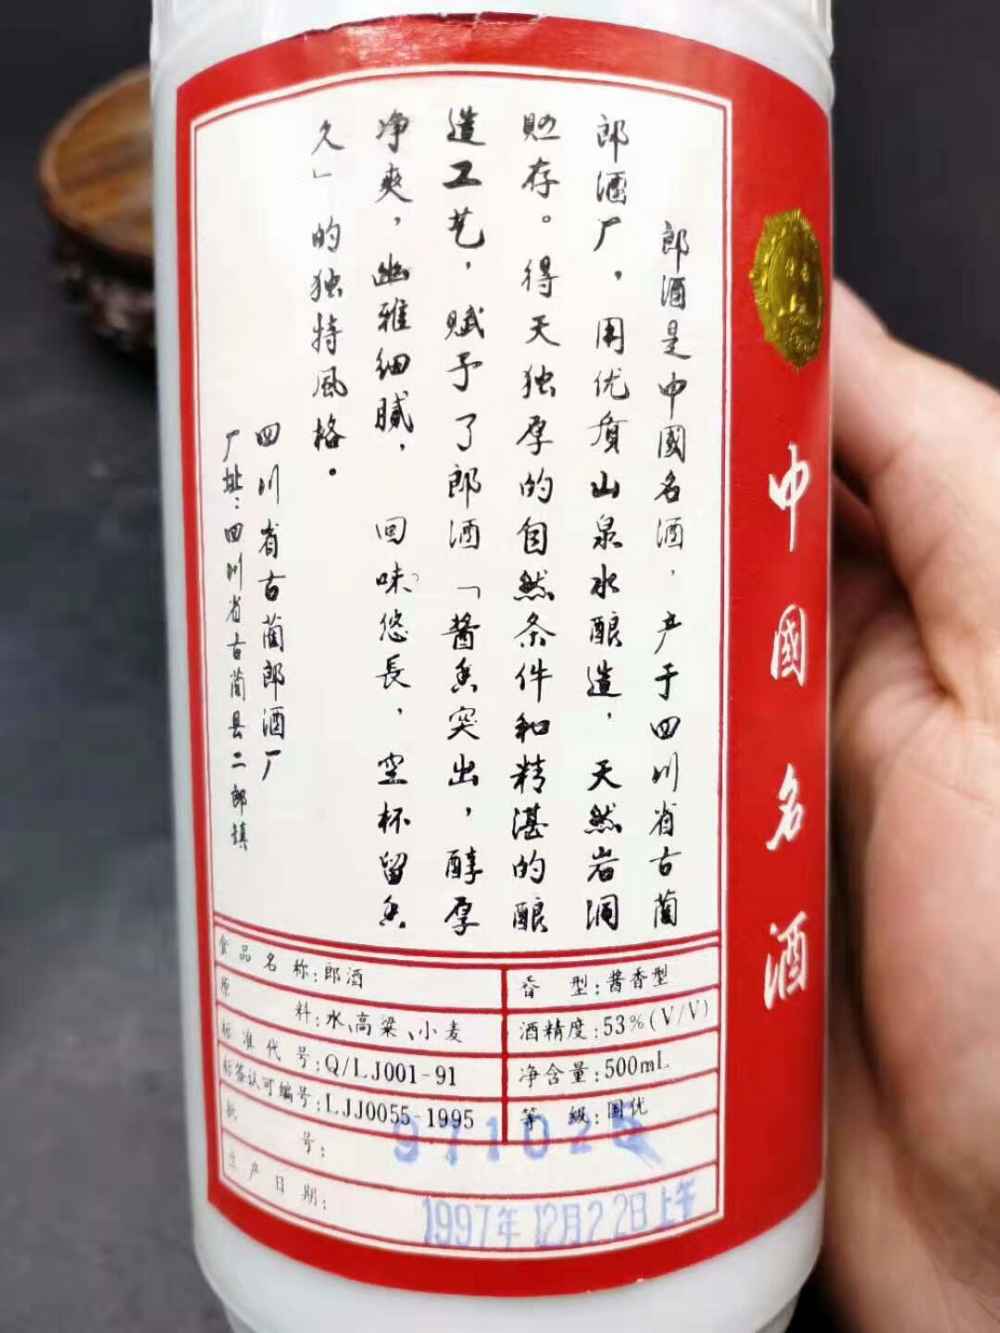 郎酒是中國名酒，产于四川省古蔺
郎酒厂，用优质山泉水酿造，天然岩洞
贮存。得天独厚的自然条件和精湛的酿
造工艺，赋予了郎酒「酱香突出，醇厚
净爽，幽雅细腻，回味悠長，空杯留香
久」的独特風格。
四川省古蔺郎酒厂
厂址：四川省古蔺县二郎镇
食品名称：郎酒
香型：酱香型
原料：水、高粱、小麦
酒精度：53%(V/V)
标准代号：Q/LJ001-91
净含量：500mL
标签认可编号：LJJ0055-1995
等级：国优
批号：
生产日期：
1997年12月22日上午
中國名酒